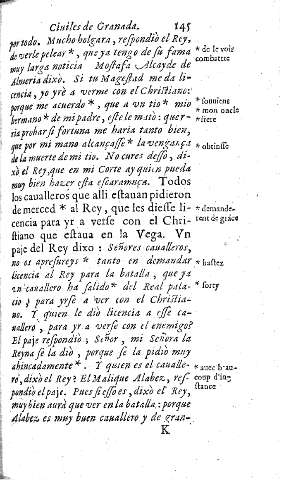 Ciuiles de Granada. 145
por todo. Mucho holgara, respondiò el Rey,
de verle pelear*, que ya tengo de su fama
muy larga noticia Mostafa Alcayde de
Almeria dixò. Si tu Magestad me da li-
cencia, yo yrè a verme con el Christiano:
porque me acuerdo*, que a vn tio* mio
hermano* de mi padre, este lo matò: quer-
ria probar si fortuna me haria tanto bien,
que por mi mano alcançasse* la vengança
de la muerte de mi tio. No cures desso, di-
xò el Rey, que en mi Corte ay quien pueda
muy bien hazer esta escaramuça. Todos
los caualleros que alli estauan pidieron
de merced* al Rey, que les diesse li-
cencia para yr a verse con el Chri-
stiano que estaua en la Vega. Vn
paje del Rey dixo: Señores caualleros,
no os apresureys* tanto en demandar
licencia al Rey para la batalla, que ya
vn cauallero ha salido* del Real pala-
cio, para yrse a ver con el Christia-
no. Y quien le diò licencia a esse ca-
uallero, para yr a verse con el enemigo?
El paje respondiò, Señor, mi Señora la
Reyna se la diò, porque se la pidiò muy
ahincadamente*. Y quien es el caualle-
ro, dixò el Rey? El Malique Alabez, res-
pondiò el paje. Pues si esso es, dixò el Rey,
muy bien aurà que ver en la batalla: porque
Alabez es muy buen cauallero y de gran-
K
* de le voir
combattre
* souuiene
* mon oncle
* frere
* obteinsse
* demande-
rent de grace
* hastez
* sorty
* auec beau-
coup d'in-
stance